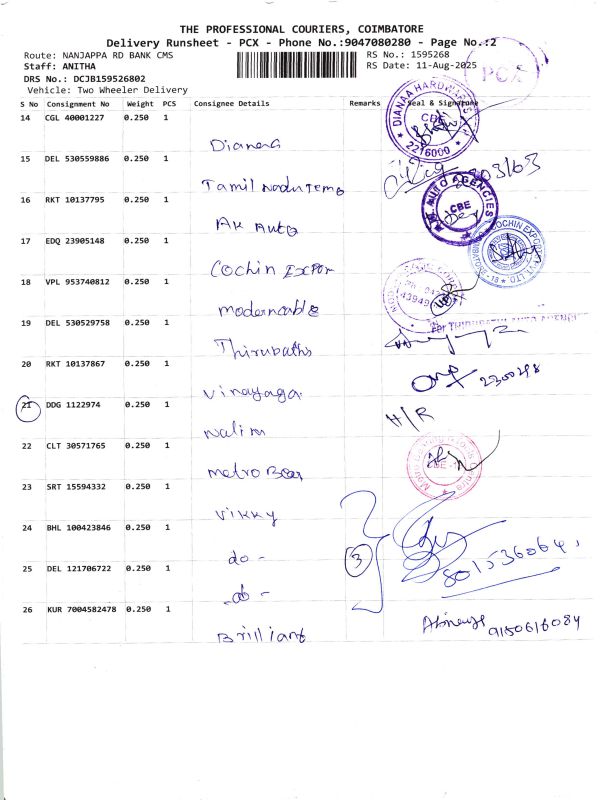 THE PROFESSIONAL COURIERS, COIMBATORE
Delivery Runsheet - PCX - Phone No.:9047080280 - Page No.:2
Route: NANJAPPA RD BANK CMS
RS No.: 1595268
Staff: ANITHA
RS Date: 11-Aug-2025
DRS No.: DCJB159526802
Vehicle: Two Wheeler Delivery
PCX
S No Consignment No Weight PCS Consignee Details Remarks Seal & Signature
14 CGL 40001227 0.250 1
DIANAA HARDWARES CBE 2216000
15 DEL 530559886 0.250 1
Tamil Nadu Temo
16 RKT 10137795 0.250 1
AK Auto
AUTO AGENCIES CBE
17 EDQ 23905148 0.250 1
Cochin Expor
COCHIN EXPO
18 VPL 953740812 0.250 1
modern cable
19 DEL 530529758 1 0.250
Thirupaths
For THIRUPATHI
20 RKT 10137867 0.250 1
Vinayaga
2300298
21 DDG 1122974 0.250 1
Nalim
H/R
22 CLT 30571765 0.250 1
metro Bear
23 SRT 15594332 0.250 1
Vikky
24 BHL 100423846 0.250 1
do -
3
25 DEL 121706722 0.250 1
do -
26 KUR 7004582478 0.250 1
Brilliant
9150616084